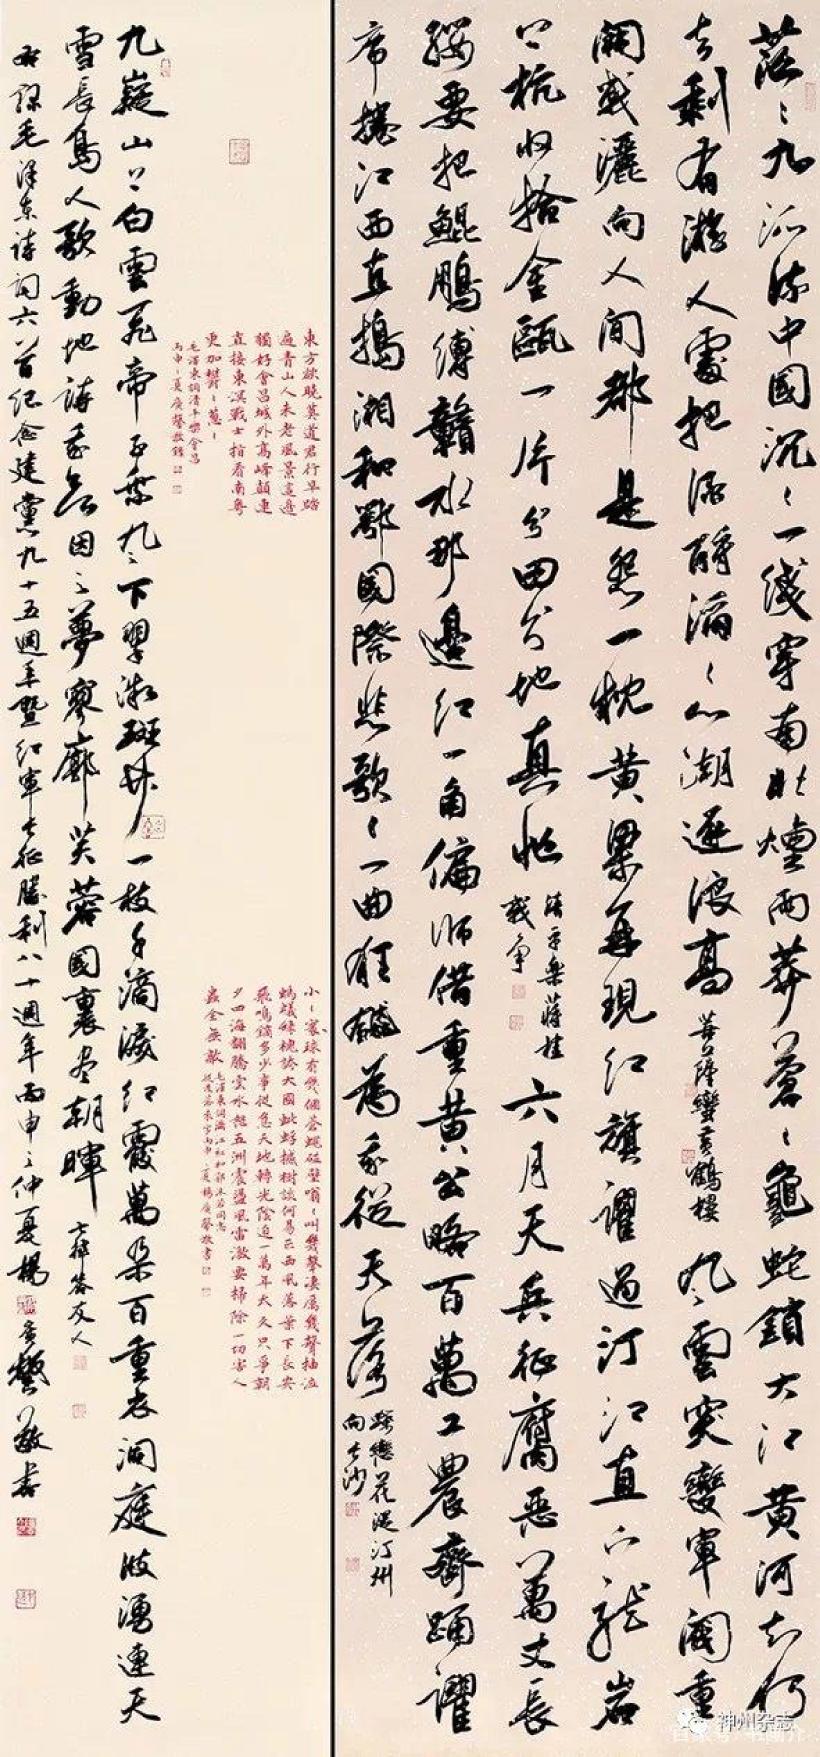 茫〻九派流中國沉〻一綫穿南北煙雨莽蒼〻龜蛇鎖大江黄河知何
去剩有游人處把酒酹滔〻心潮逐浪高 菩薩蠻黄鶴樓 風雲突變軍閥重
開戰灑向人間都是怨一枕黄粱再現红旗躍過汀江直下龍岩
上杭收拾金甌一片分田分地真忙 清平樂蔣桂戰争 六月天兵征腐惡萬丈長
纓要把鯤鵬縛贛水那邊红一角偏師借重黄公略百萬工農齊踴躍
席捲江西直搗湘和鄂國際悲歌〻一曲狂飆為我從天落 蝶戀花從汀州向長沙
東方欲曉莫道君行早踏
遍青山人未老風景這邊
獨好會昌城外高峰顛連
直接東溟戰士指看南粤
更加鬱〻蔥〻
毛澤東詞清平樂會昌
丙申〻夏廣馨敬録
小〻寰球有幾個蒼蠅碰壁嗡〻叫幾聲凄厲幾聲抽泣
螞蟻緣槐誇大國蚍蜉撼樹談何易正西風落葉下長安
飛鳴鏑多少事從急天地轉光陰迫一萬年太久只爭朝
夕四海翻騰雲水怒五洲震盪風雷激要掃除一切害人
蟲全無敵
毛澤東詞滿江紅和郭沫若同志
從後落來字丙申〻夏楊廣馨敬書
九嶷山上白雲飛帝子乘風下翠微斑竹一枝千滴淚红霞萬朵百重衣洞庭波湧連天
雪長島人歌動地詩我欲因之夢寥廓芙蓉國裏盡朝暉 七律答友人
右録毛澤東詩詞六首紀念建黨九十五週年暨红軍長征勝利八十週年丙申〻仲夏楊廣馨敬書
神州杂志